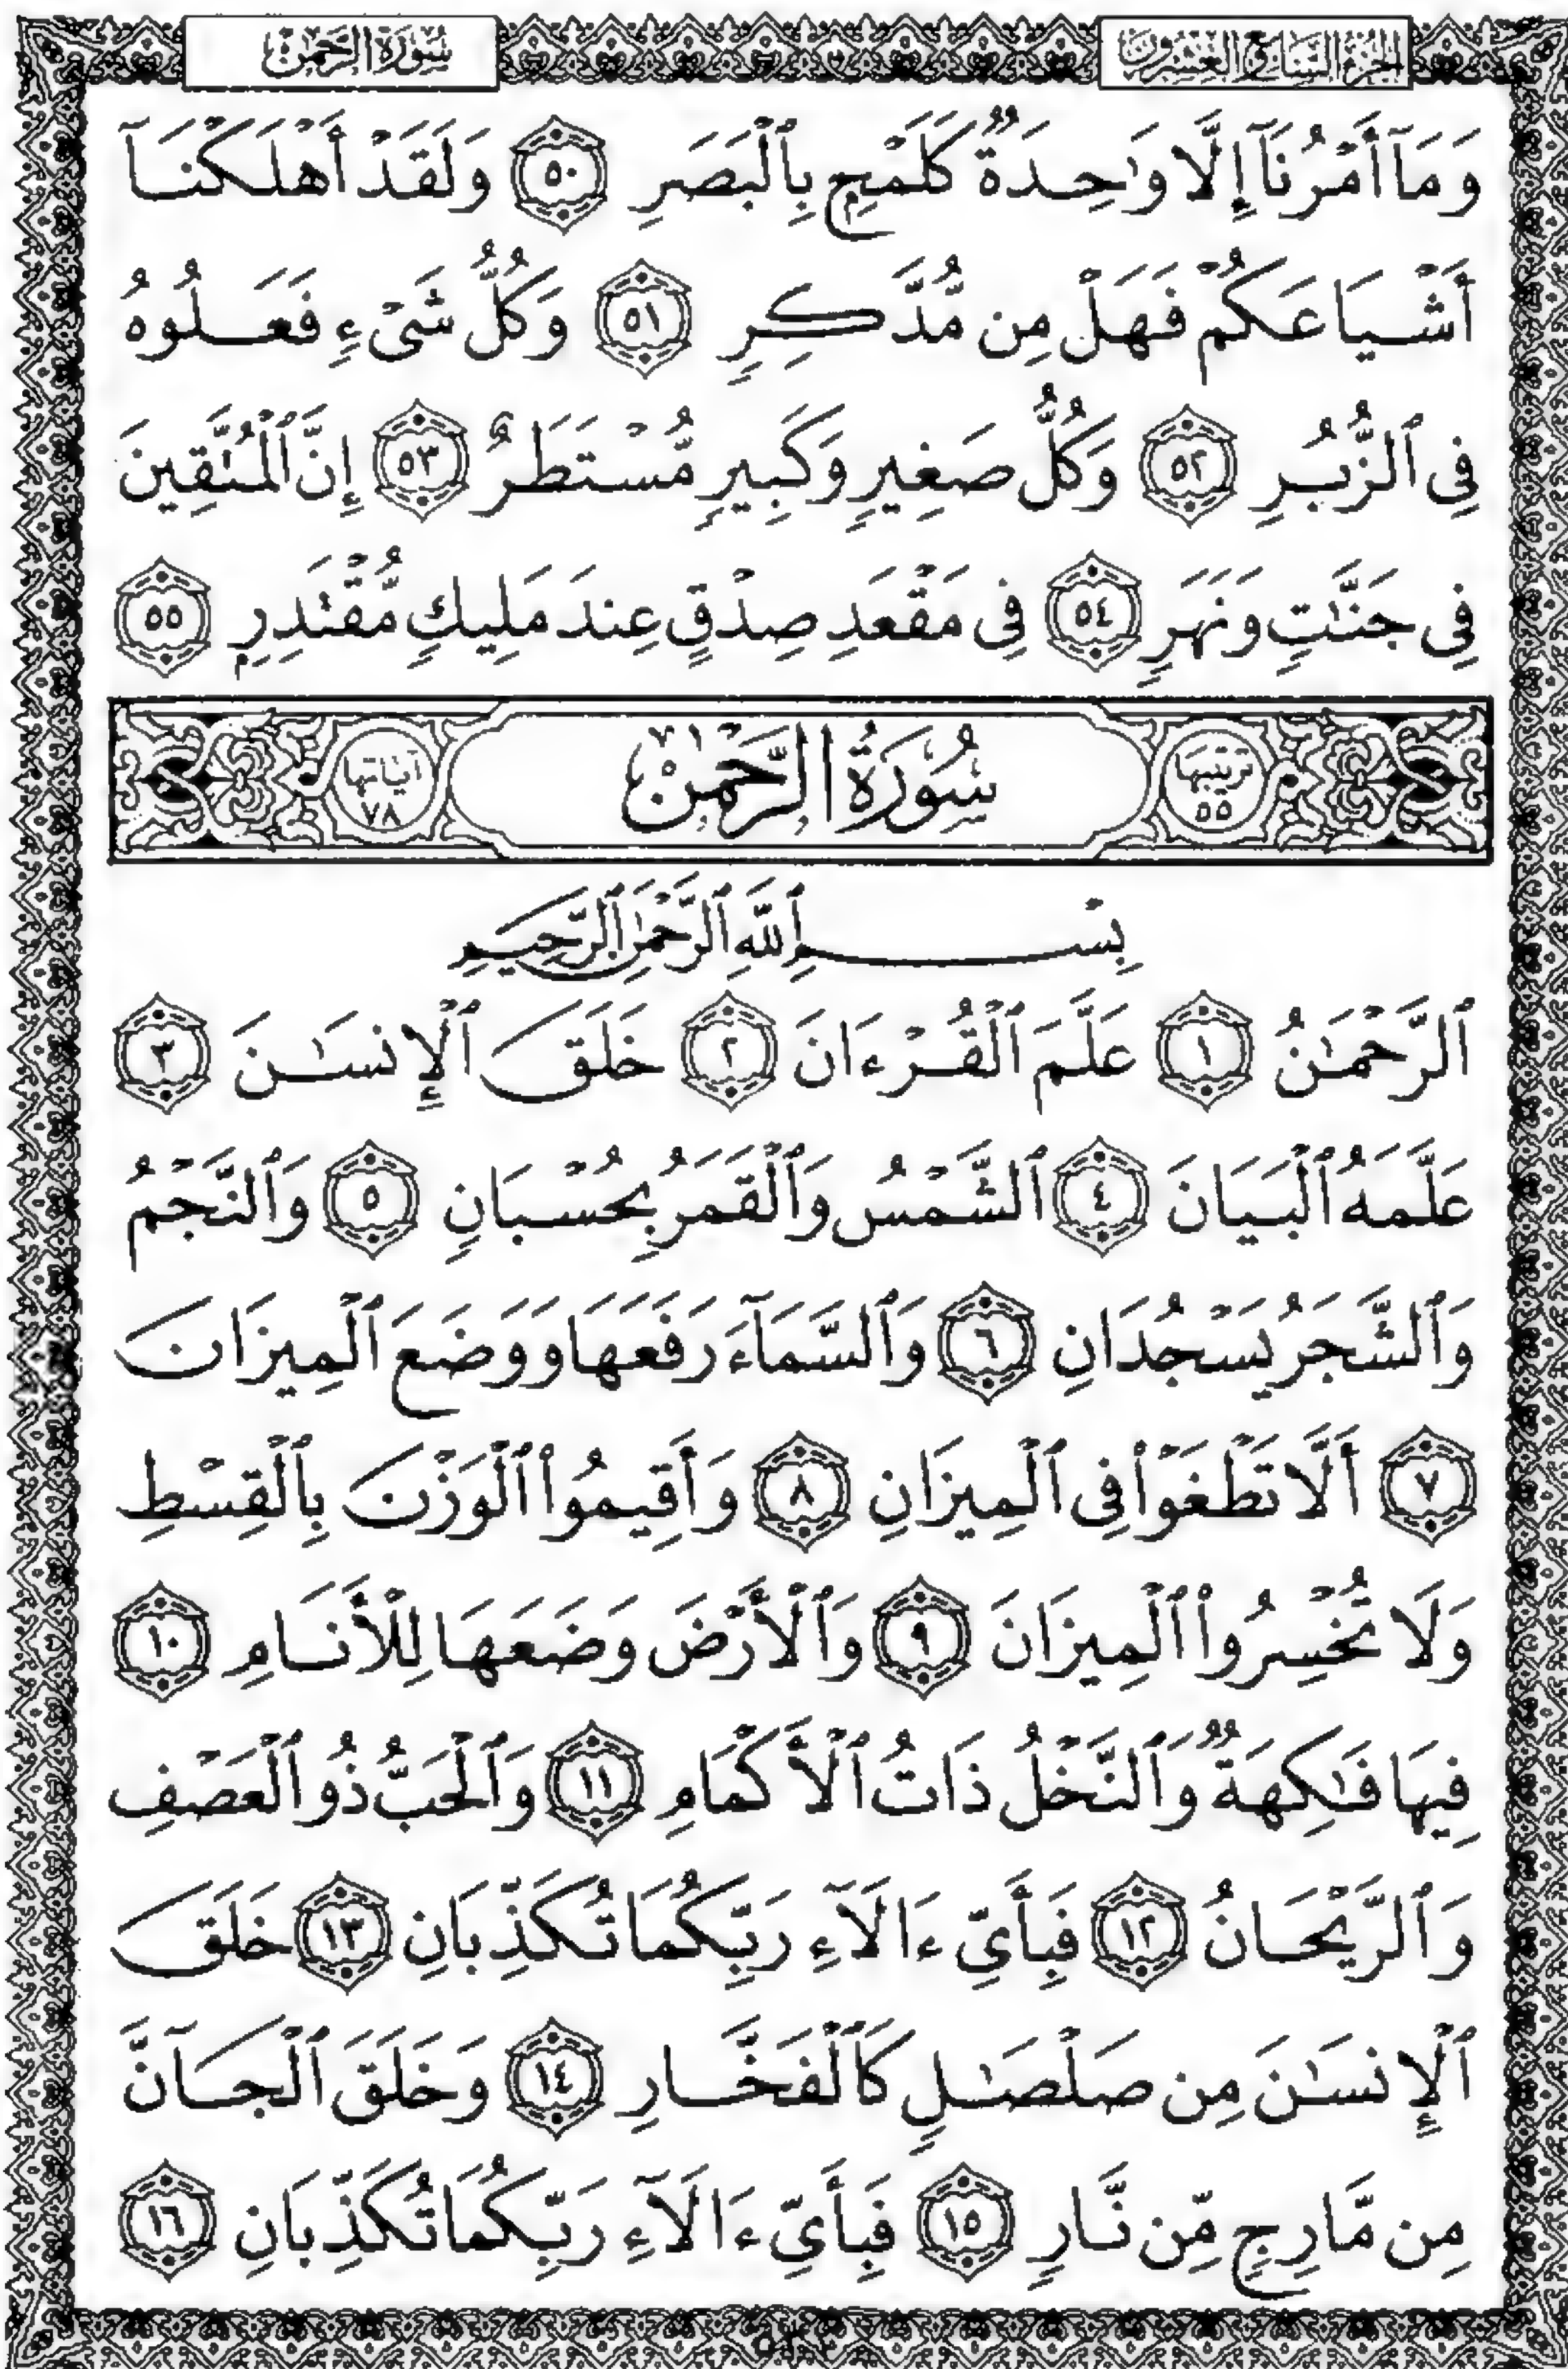 الجزء السابع والعشرون سورة الرحمن
وَمَآ أَمْرُنَآ إِلَّا وَٰحِدَةٌ كَلَمْحٍۭ بِٱلْبَصَرِ ٥٠ وَلَقَدْ أَهْلَكْنَآ
أَشْيَاعَكُمْ فَهَلْ مِن مُّدَّكِرٍ ٥١ وَكُلُّ شَىْءٍ فَعَلُوهُ
فِى ٱلزُّبُرِ ٥٢ وَكُلُّ صَغِيرٍ وَكَبِيرٍ مُّسْتَطَرٌ ٥٣ إِنَّ ٱلْمُتَّقِينَ
فِى جَنَّٰتٍ وَنَهَرٍ ٥٤ فِى مَقْعَدِ صِدْقٍ عِندَ مَلِيكٍ مُّقْتَدِرٍۭ ٥٥
ترتيبها ٥٥ سُورَةُ الرَّحْمٰن آياتها ٧٨
بِسْمِ ٱللَّهِ ٱلرَّحْمَٰنِ ٱلرَّحِيمِ
ٱلرَّحْمَٰنُ ١ عَلَّمَ ٱلْقُرْءَانَ ٢ خَلَقَ ٱلْإِنسَٰنَ ٣
عَلَّمَهُ ٱلْبَيَانَ ٤ ٱلشَّمْسُ وَٱلْقَمَرُ بِحُسْبَانٍ ٥ وَٱلنَّجْمُ
وَٱلشَّجَرُ يَسْجُدَانِ ٦ وَٱلسَّمَآءَ رَفَعَهَا وَوَضَعَ ٱلْمِيزَانَ
٧ أَلَّا تَطْغَوْا۟ فِى ٱلْمِيزَانِ ٨ وَأَقِيمُوا۟ ٱلْوَزْنَ بِٱلْقِسْطِ
وَلَا تُخْسِرُوا۟ ٱلْمِيزَانَ ٩ وَٱلْأَرْضَ وَضَعَهَا لِلْأَنَامِ ١٠
فِيهَا فَٰكِهَةٌ وَٱلنَّخْلُ ذَاتُ ٱلْأَكْمَامِ ١١ وَٱلْحَبُّ ذُو ٱلْعَصْفِ
وَٱلرَّيْحَانُ ١٢ فَبِأَىِّ ءَالَآءِ رَبِّكُمَا تُكَذِّبَانِ ١٣ خَلَقَ
ٱلْإِنسَٰنَ مِن صَلْصَٰلٍ كَٱلْفَخَّارِ ١٤ وَخَلَقَ ٱلْجَآنَّ
مِن مَّارِجٍ مِّن نَّارٍ ١٥ فَبِأَىِّ ءَالَآءِ رَبِّكُمَا تُكَذِّبَانِ ١٦